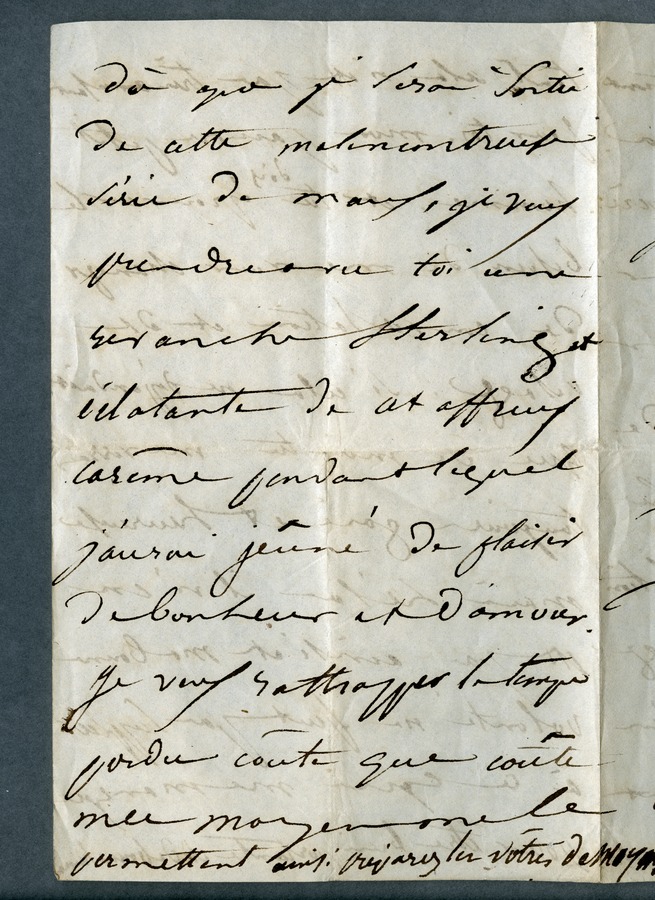 dès que je serai sortie
de cette malencontreuse
série de maux, je veux
prendre avec toi une
revanche Sterling et
éclatante de cet affreux
carême pendant lequel
j'aurai jeûné de plaisir
de bonheur et d'amour.
Je veux rattrapper le temps
perdu coûte que coûte
mes moyens me le
permettent ainsi préparez les vôtres de moyens